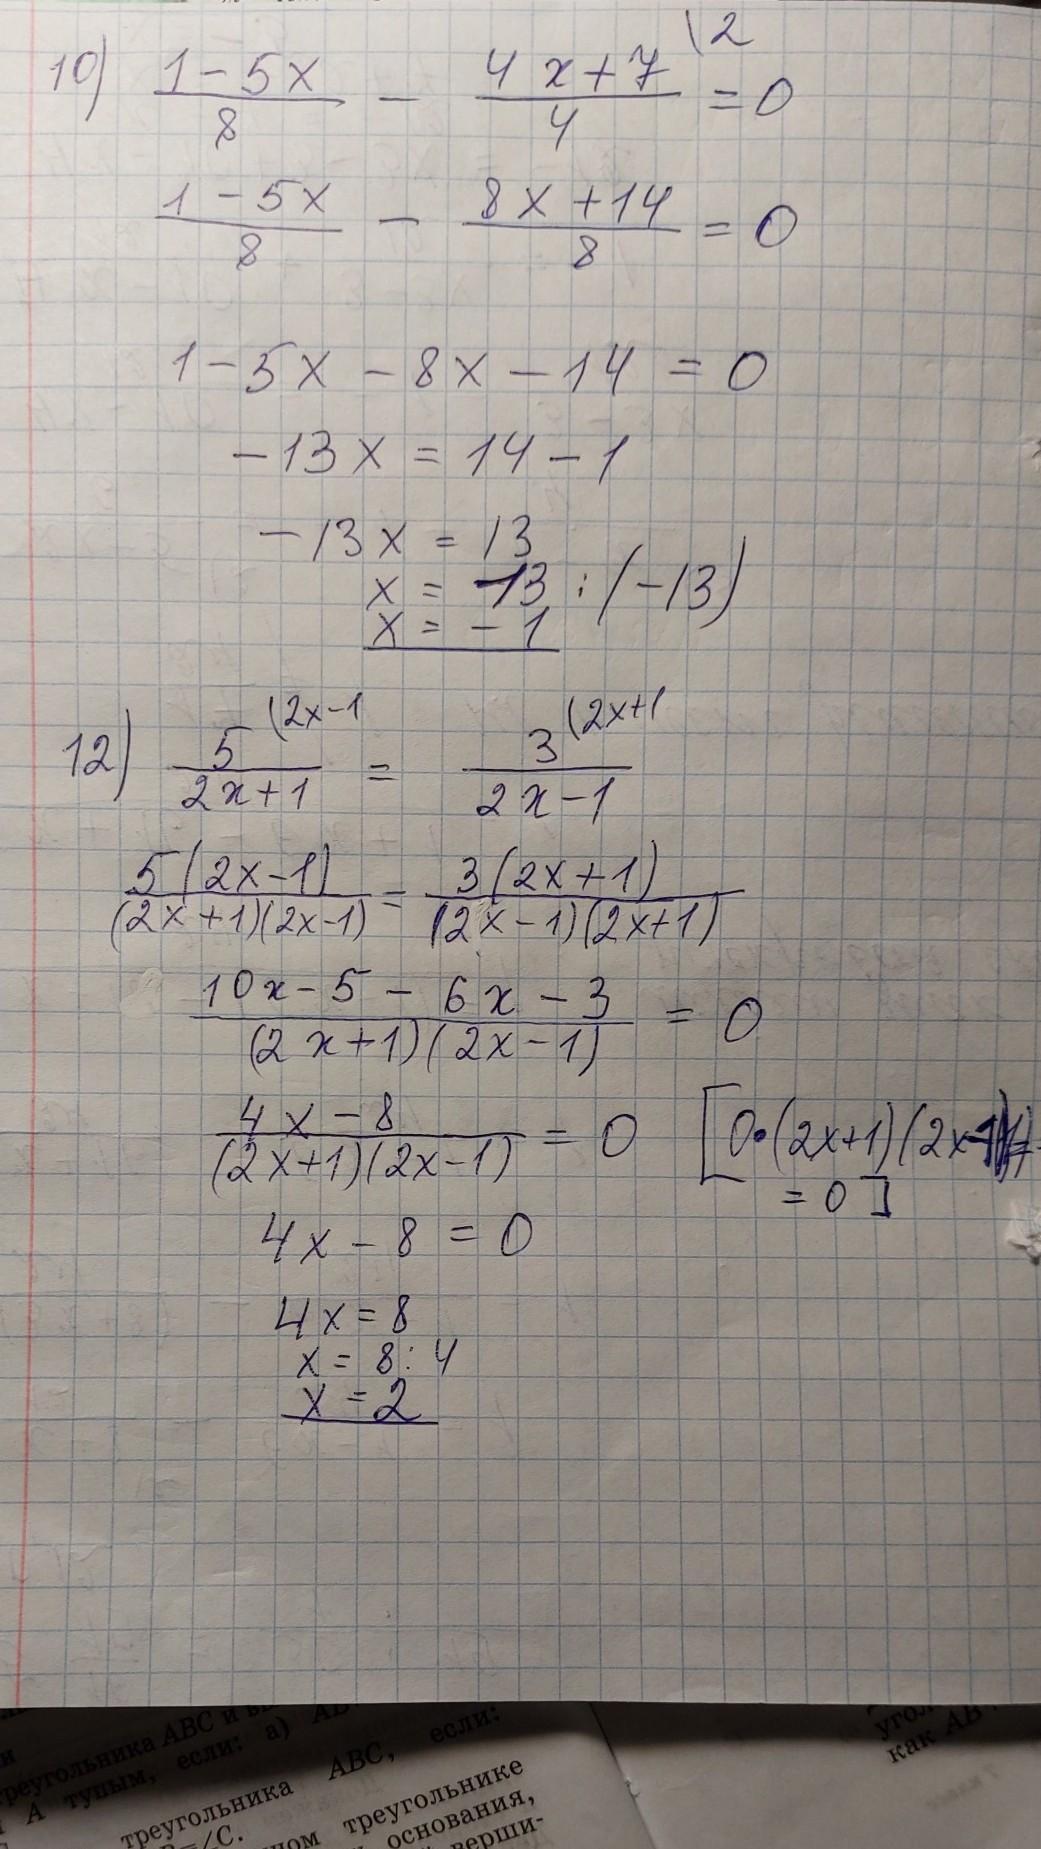 10) (1-5x)/8 - (4x+7)/4 \2 = 0
(1-5x)/8 - (8x+14)/8 = 0
1-5x-8x-14 = 0
-13x = 14-1
-13x = 13
x = 13 : (-13)
x = -1
12) 5/(2x+1) (2x-1 = 3/(2x-1) (2x+1
5(2x-1)/(2x+1)(2x-1) = 3(2x+1)/(2x-1)(2x+1)
(10x-5-6x-3)/(2x+1)(2x-1) = 0
(4x-8)/(2x+1)(2x-1) = 0 [0·(2x+1)(2x-1)
= 0]
4x-8 = 0
4x = 8
x = 8:4
x = 2
треугольника ABC и
А тупым, если: а)
треугольника ABC, если:
=∠C.
треугольнике
основания,
верши-
как АВ